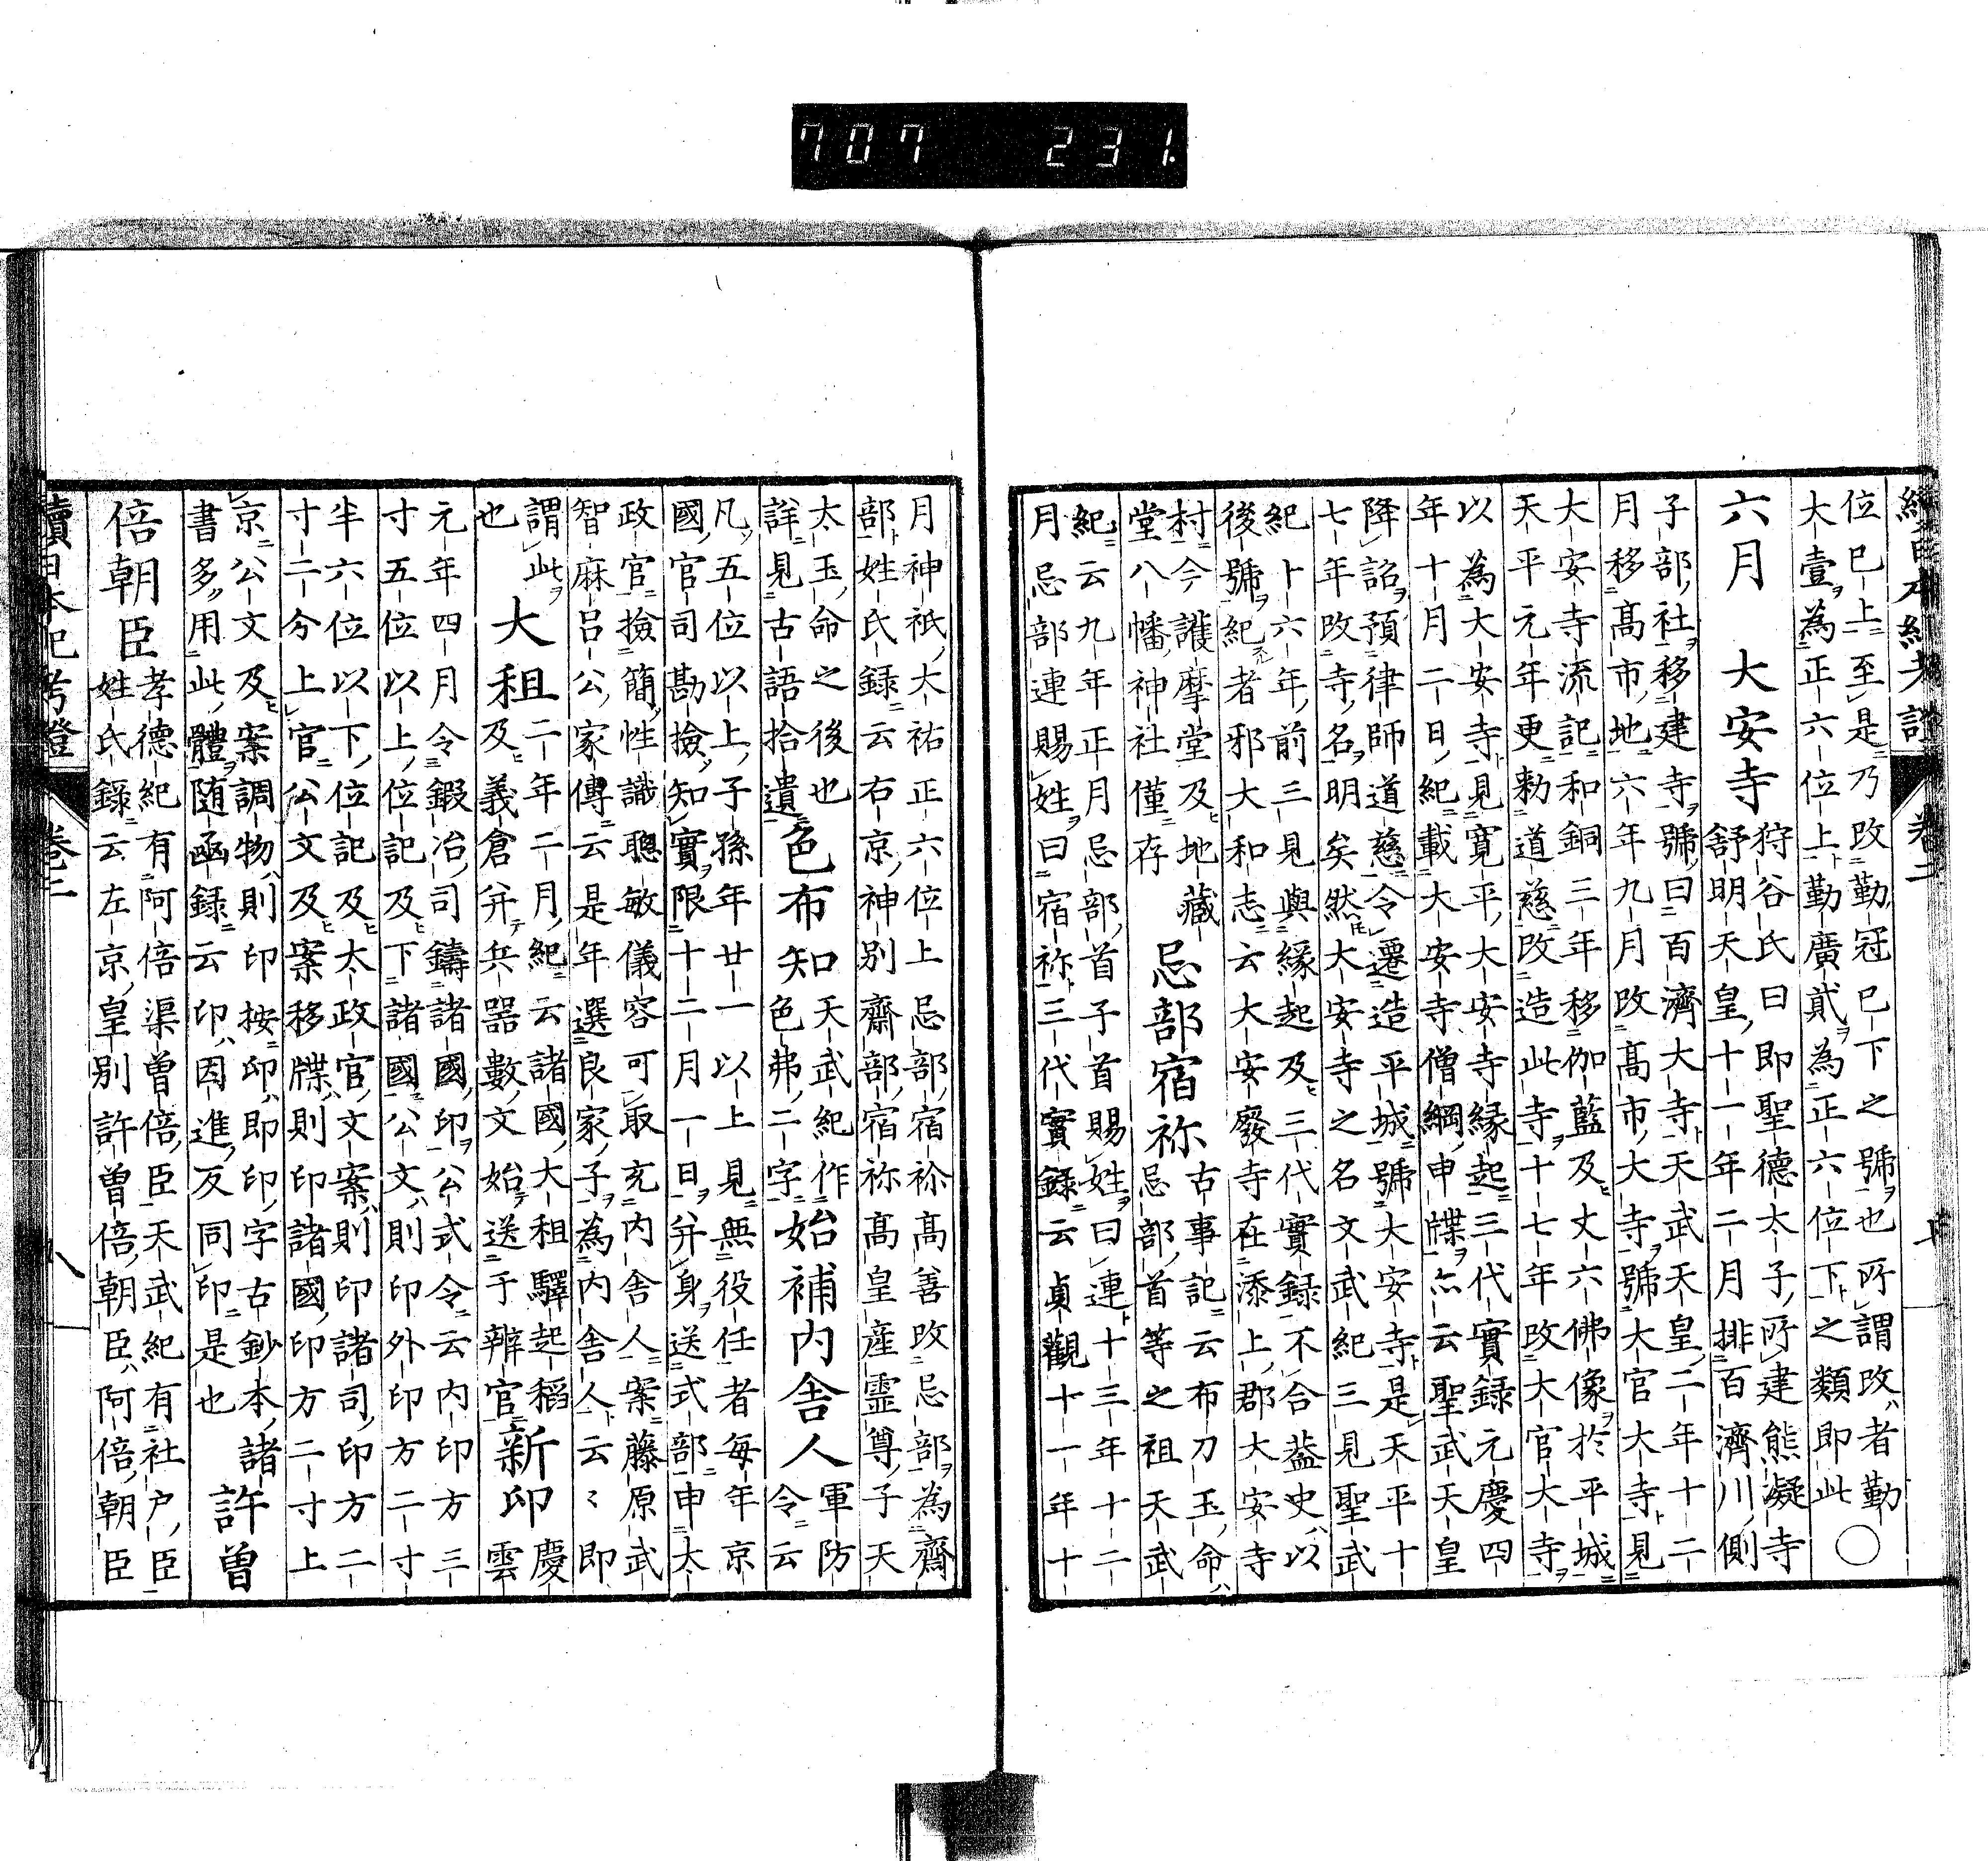 707 231.
續日本紀考證 卷二
位已上至是乃改勤冠已下之號也所謂改者勤
大壹為正六位上勤廣貳為正六位下之類即此○
六月 大安寺
狩谷氏曰即聖德太子所建熊凝寺
舒明天皇十一年二月排百濟川側
子部社移建寺號曰百濟大寺天武天皇二年十二
月移髙市地六年九月改髙市大寺號大官大寺見
大安寺流記和銅三年移伽藍及丈六佛像於平城
天平元年更勅道慈改造此寺十七年改大官大寺
以為大安寺見寛平大安寺緣起三代實録元慶四
年十月二日紀載大安寺僧綱申牒亦云聖武天皇
降詔預律師道慈令遷造平城號大安寺是天平十
七年改寺名明矣然大安寺之名文武紀三見聖武
紀十六年前三見與緣起及三代實録不合葢史以
後號紀者邪大和志云大安廢寺在添上郡大安寺
村今護摩堂及地藏
堂八幡神社僅存
忌部宿祢
古事記云布刀玉命
忌部首等之祖天武
紀云九年正月忌部首子首賜姓曰連十三年十二
月忌部連賜姓曰宿祢三代實録云貞觀十一年十
月神祇大祐正六位上忌部宿祢髙善改忌部為齋
部姓氏録云右京神别齋部宿祢髙皇産靈尊子天
太玉命之後也
詳見古語拾遺
色布知
天武紀作
色弗二字
始補内舎人
軍防
令云
凡五位以上子孫年廿一以上見無役任者每年京
國官司勘撿知實限十二月一日并身送式部申太
政官撿簡性識聰敏儀容可取充内舎人案藤原武
智麻呂公家傳云是年選良家子為内舎人云〻即
謂此
也
大租
二年二月紀云諸國大租驛起稻
及義倉并兵器數文始送于辨官
新印
慶
雲
元年四月令鍛冶司鑄諸國印公式令云内印方三
寸五位以上位記及下諸國公文則印外印方二寸
半六位以下位記及太政官文案則印諸司印方二
寸二分上官公文及案移牒則印諸國印方二寸上
京公文及案調物則印按印即印字古鈔本諸
書多用此體随函録云印因進反同印是也
許曽
倍朝臣
孝德紀有阿倍渠曽倍臣天武紀有社户臣
姓氏録云左京皇别許曽倍朝臣阿倍朝臣
續日本紀考證 卷二 八